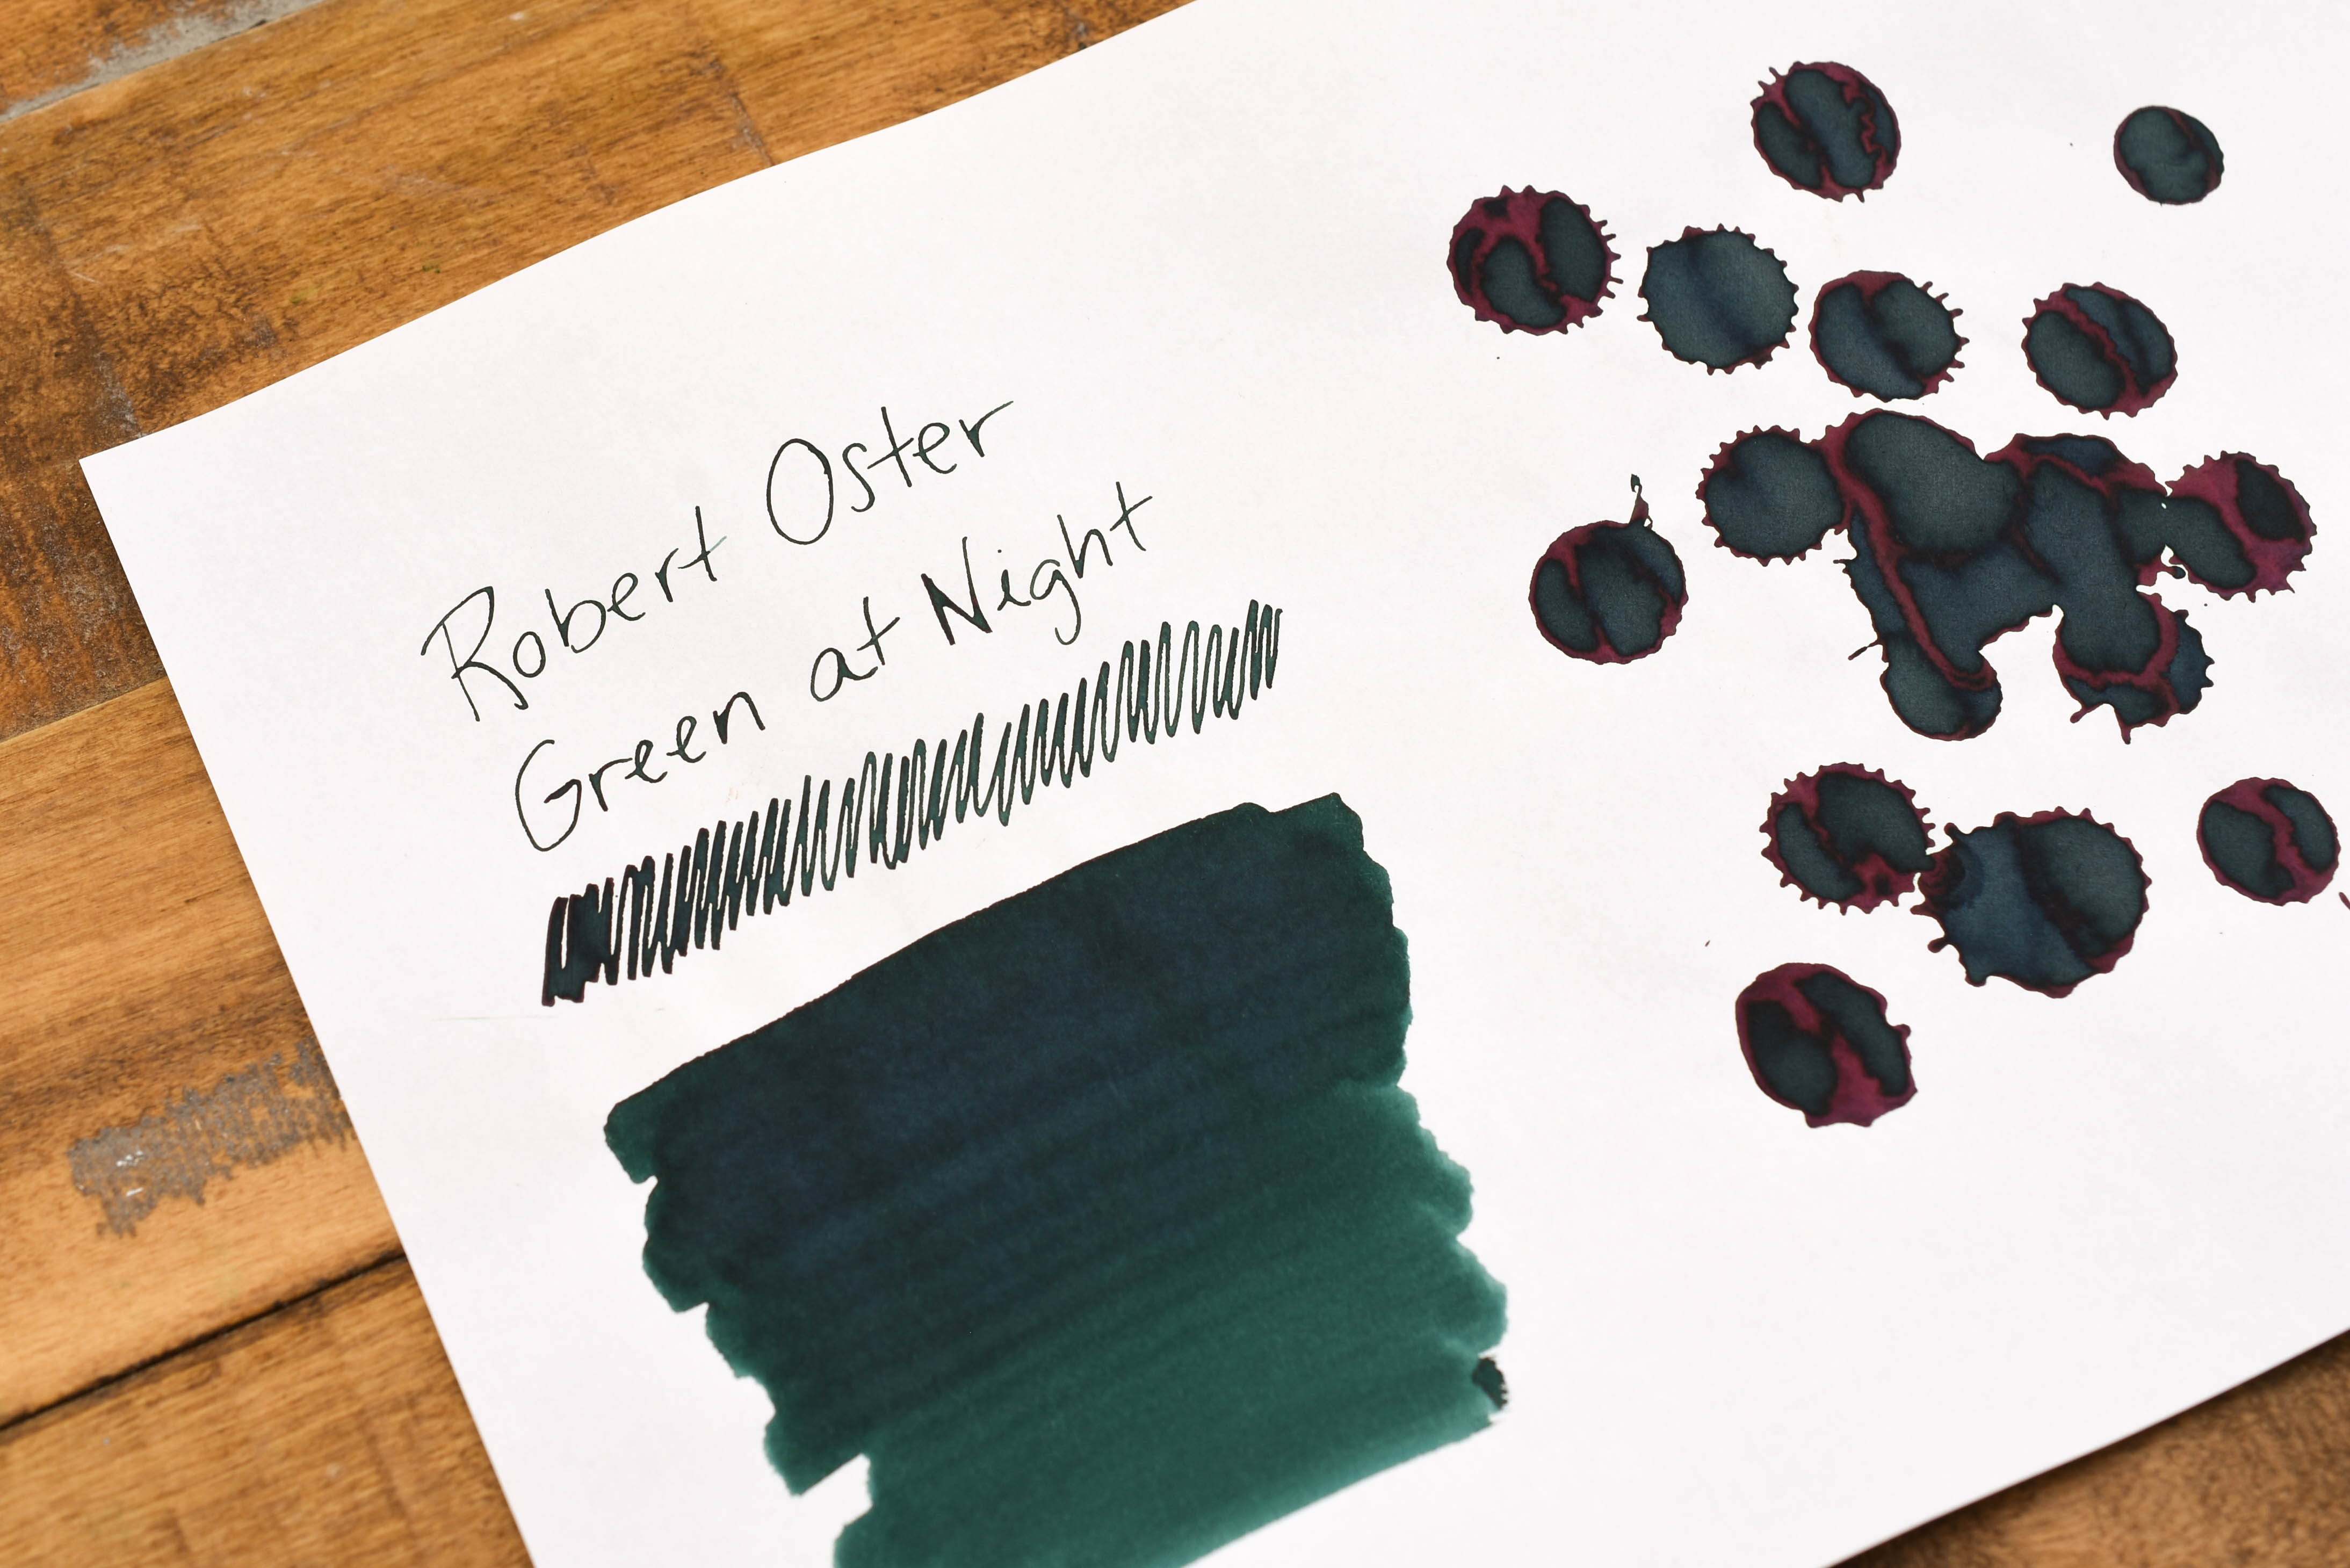 Robert Oster
Green at Night